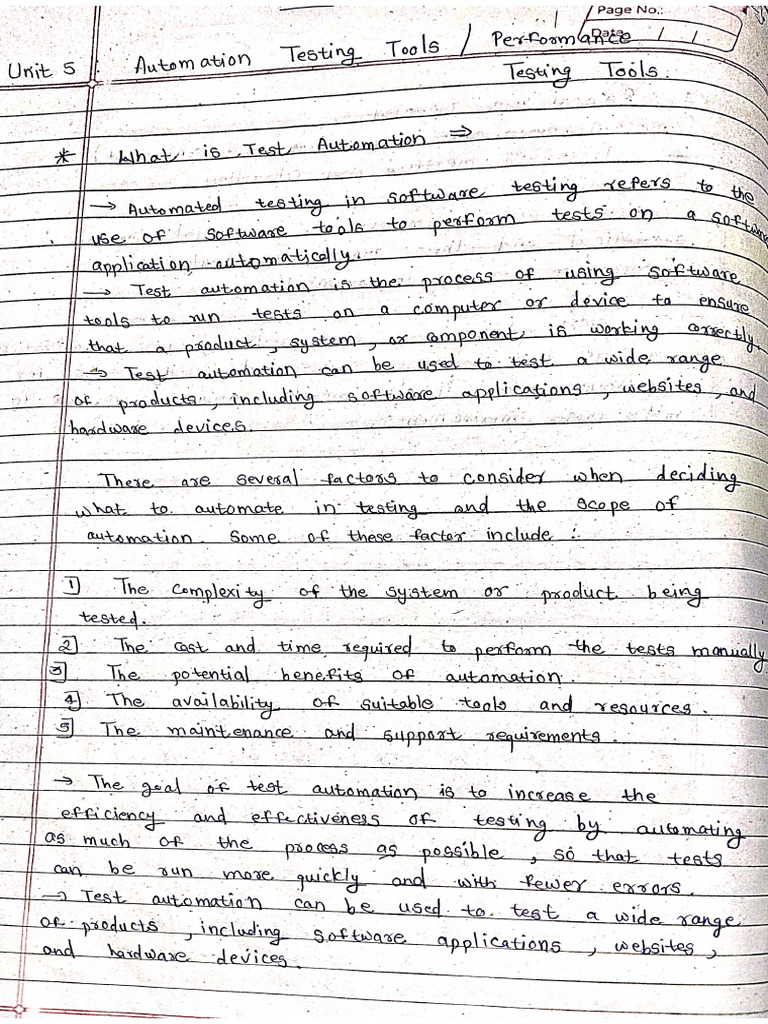 Page No.:
Date / /
Unit 5 Automation Testing Tools / Performance
Testing Tools.
* What is Test Automation ⇒
→ Automated testing in software testing refers to the
use of software tools to perform tests on a software
application automatically.
→ Test automation is the process of using software
tools to run tests on a computer or device to ensure
that a product, system, or component is working correctly.
→ Test automation can be used to test a wide range
of products, including software applications, websites, and
hardware devices.
There are several factors to consider when deciding
what to automate in testing and the scope of
automation. Some of these factor include :
1] The complexity of the system or product being
tested.
2] The cost and time required to perform the tests manually
3] The potential benefits of automation.
4] The availability of suitable tools and resources.
5] The maintenance and support requirements.
→ The goal of test automation is to increase the
efficiency and effectiveness of testing by automating
as much of the process as possible, so that tests
can be run more quickly and with fewer errors.
→ Test automation can be used to test a wide range
of products, including software applications, websites,
and hardware devices.